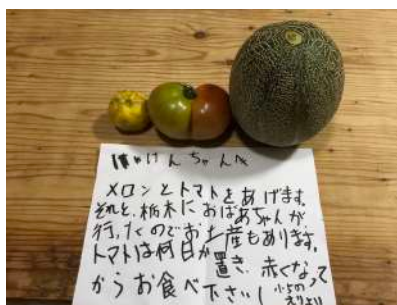 けんちゃんへ
メロンとトマトをあげます。
それと、栃木におばあちゃんが
行ったのでお土産もあります。
トマトは何日か置き、赤くなって
からお食べ下さい！